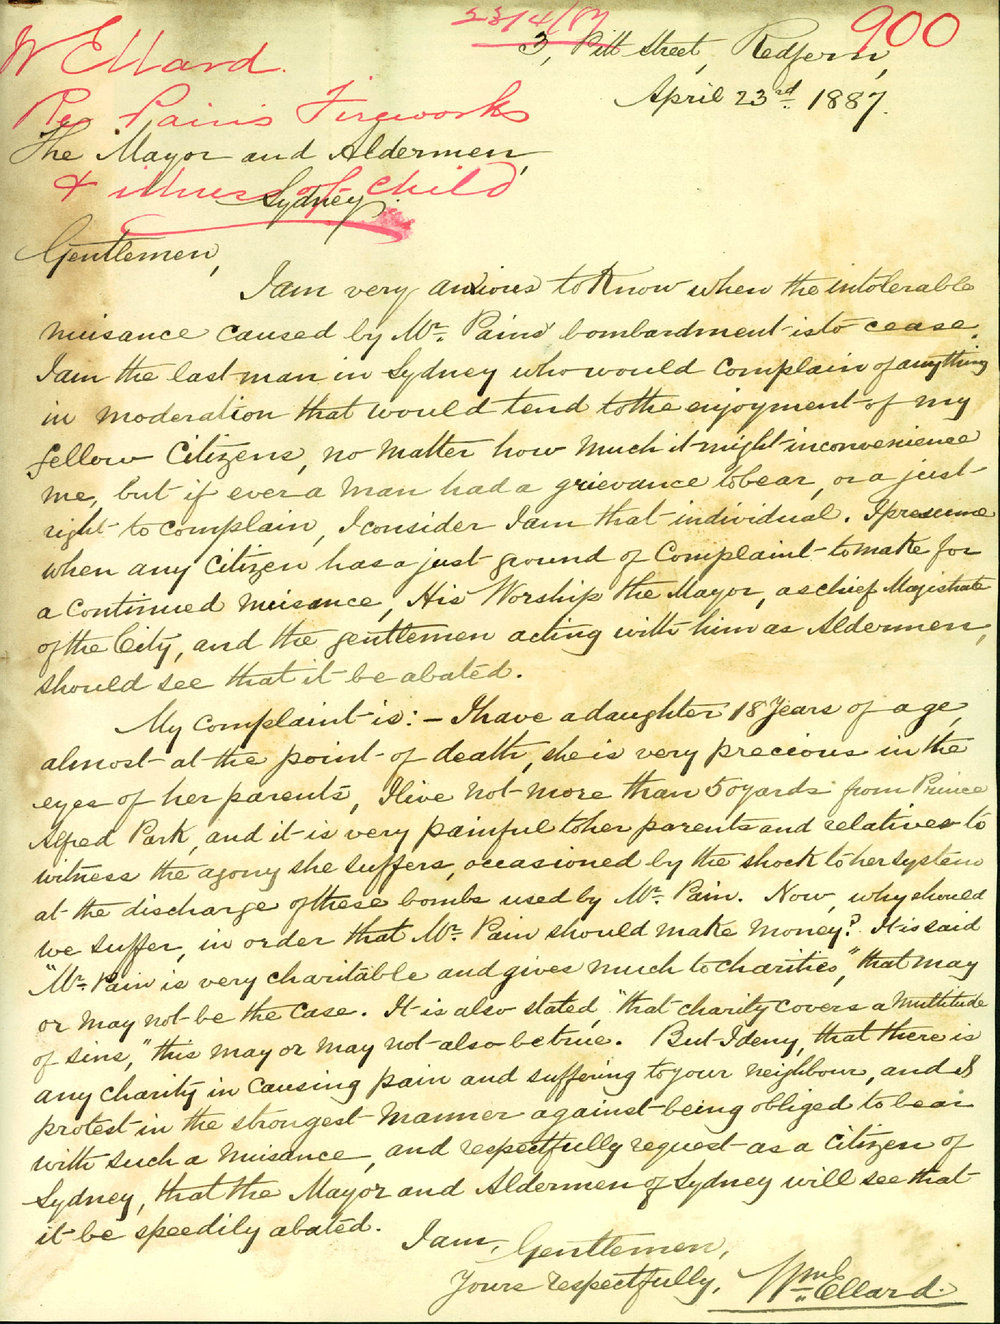 23/4/87
900
W Ellard.
Re Pain's Fireworks
& illness of child
3, Pitt Street, Redfern,
April 23rd. 1887.
The Mayor and Aldermen,
Sydney.
Gentlemen,
I am very anxious to know when the intolerable
nuisance caused by Mr. Pains' bombardment is to cease.
I am the last man in Sydney who would complain of anything
in moderation that would tend to the enjoyment of my
fellow Citizens, no matter how much it might inconvenience
me, but if ever a man had a grievance to bear, or a just
right to complain, I consider I am that individual. I presume
when any Citizen has a just ground of Complaint to make for
a continued nuisance, His Worship the Mayor, as chief Magistrate
of the City, and the gentlemen acting with him as Aldermen,
should see that it be abated.
My complaint is:- I have a daughter 18 Years of age,
almost at the point of death, she is very precious in the
eyes of her parents, I live not more than 50 yards from Prince
Alfred Park, and it is very painful to her parents and relatives to
witness the agony she suffers, occasioned by the shock to her system
at the discharge of these bombs used by Mr. Pain. Now, why should
we suffer, in order that Mr. Pain should make money? It is said
"Mr. Pain is very charitable and gives much to charities," that may
or may not be the case. It is also stated, "that charity covers a multitude
of sins," this may or may not also be true. But I deny, that there is
any charity in causing pain and suffering to your neighbour, and I
protest in the strongest manner against being obliged to bear
with such a nuisance, and respectfully request as a Citizen of
Sydney, that the Mayor and Aldermen of Sydney will see that
it be speedily abated.
I am, Gentlemen,
Yours respectfully,
Wm Ellard.